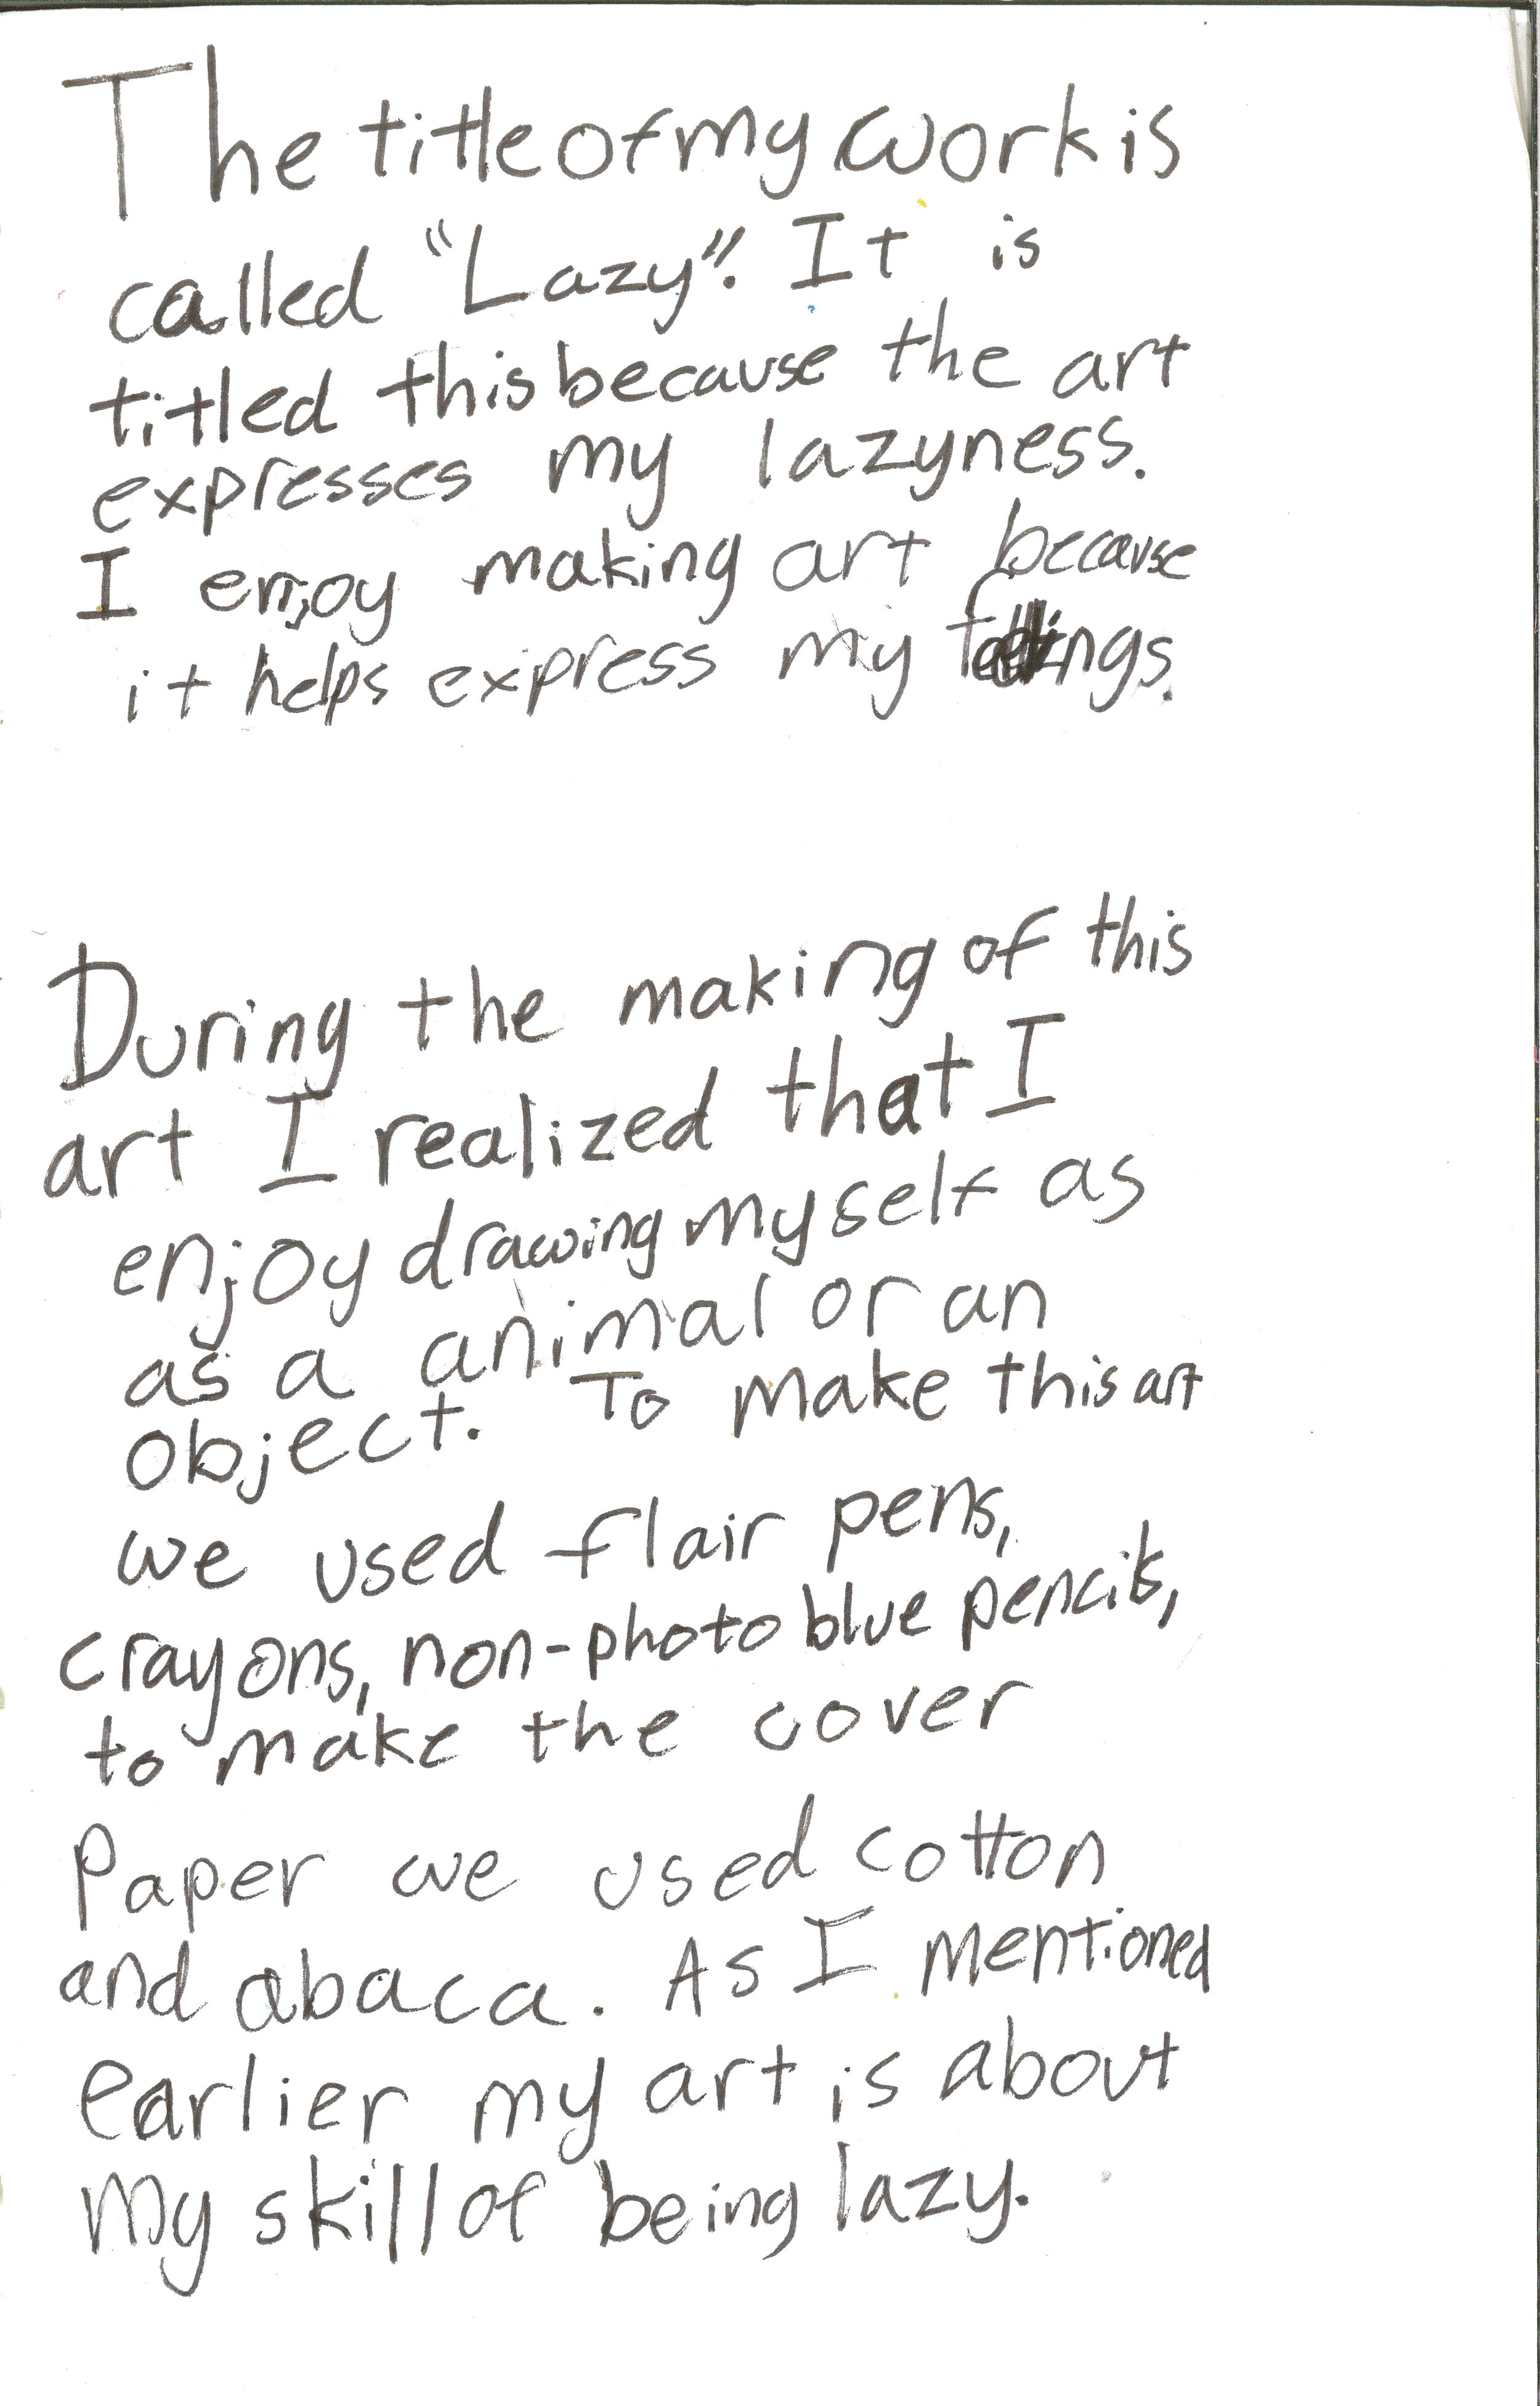 The title of my work is
called "Lazy". It is
titled this because the art
expresses my lazyness.
I enjoy making art because
it helps express my feelings.
During the making of this
art I realized that I
enjoy drawing myself as
as a animal or an
object. To make this art
we used flair pens,
crayons, non-photo blue pencils,
to make the cover
Paper we used cotton
and abaca. As I mentioned
earlier my art is about
my skill of being lazy.